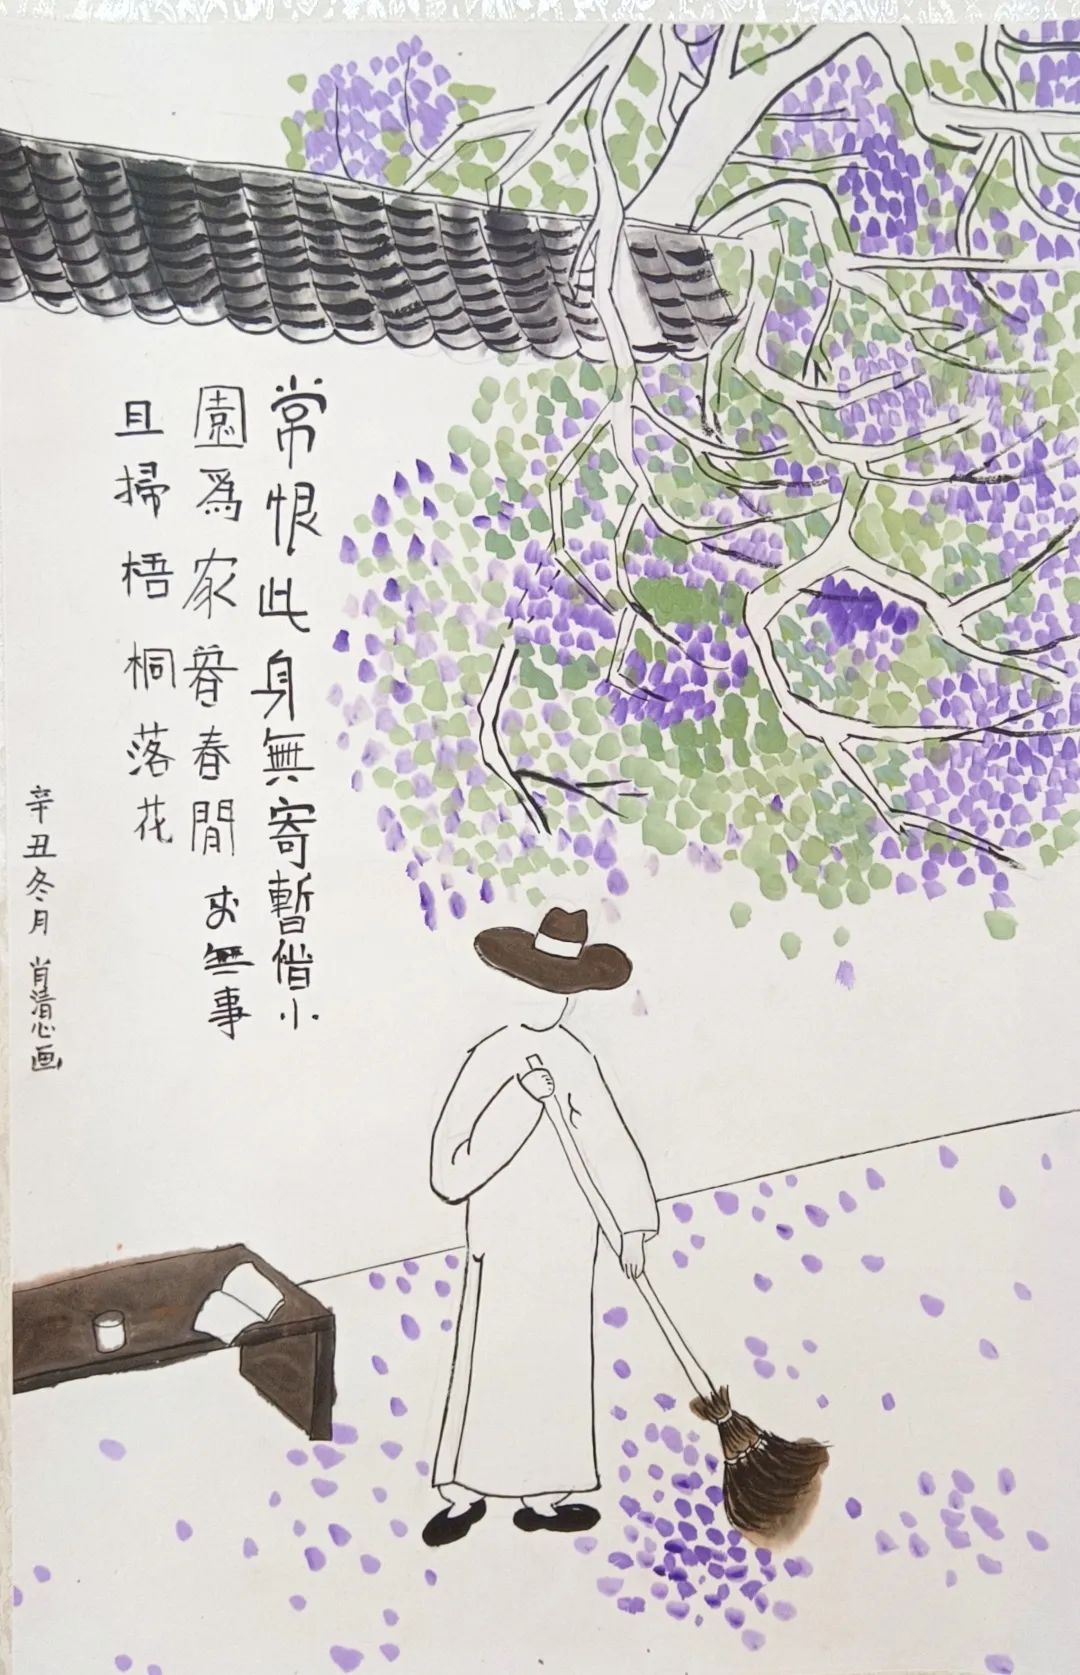 常恨此身無寄暫借小
園爲家暮春閒来無事
且掃梧桐落花
辛丑冬月 肖清心画